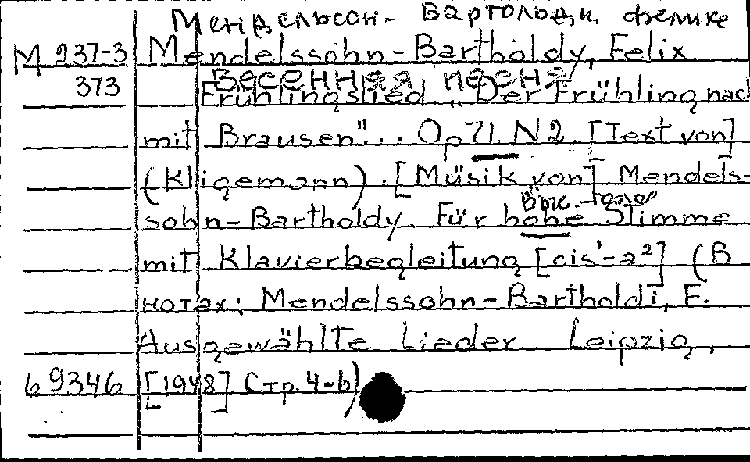 Мендельсон-Бартольди, Феликс
М 237-3 Mendelssohn-Bartholdy, Felix
373 Весенняя песня
Frühlingslied „Der Frühling nach
mit Brausen"... Op 71 N2. [Text von]
(Kligemann). [Müsik von] Mendels-
Выс. голос
sohn-Bartholdy. Für hohe Stimme
mit Klavierbegleitung [cis'-a²] (В
нотах: Mendelssohn-Bartholdi, F.
Ausgewählte Lieder Leipzig,
69346 [1948] Стр. 4-6)